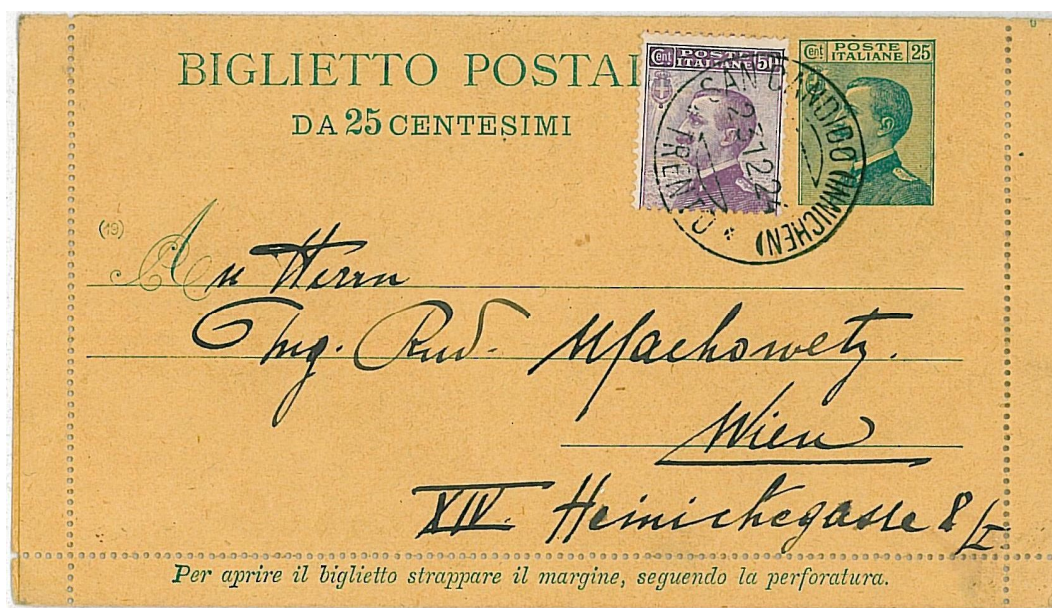 BIGLIETTO POSTAL
DA 25 CENTESIMI
Cent POSTE ITALIANE 50
Cent POSTE ITALIANE 25
SAN CANDIDO (INNICHEN)
* TRENTO *
(19)
An Herrn
Ing. Rud. Machowetz.
Wien
XIV. Heinickegasse 8/I
Per aprire il biglietto strappare il margine, seguendo la perforatura.